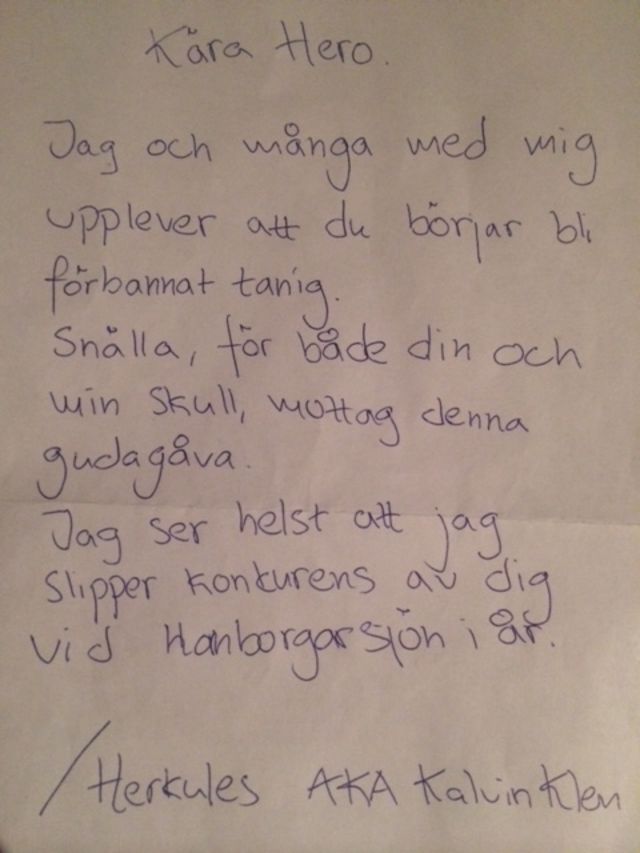 Kära Hero.
Jag och många med mig
upplever att du börjar bli
förbannat tanig.
Snålla, för både din och
min skull, mottag denna
gudagåva.
Jag ser helst att jag
slipper konkurens av dig
vid Hanborgarsjön i år.
/Herkules AKA Kalvin Klen